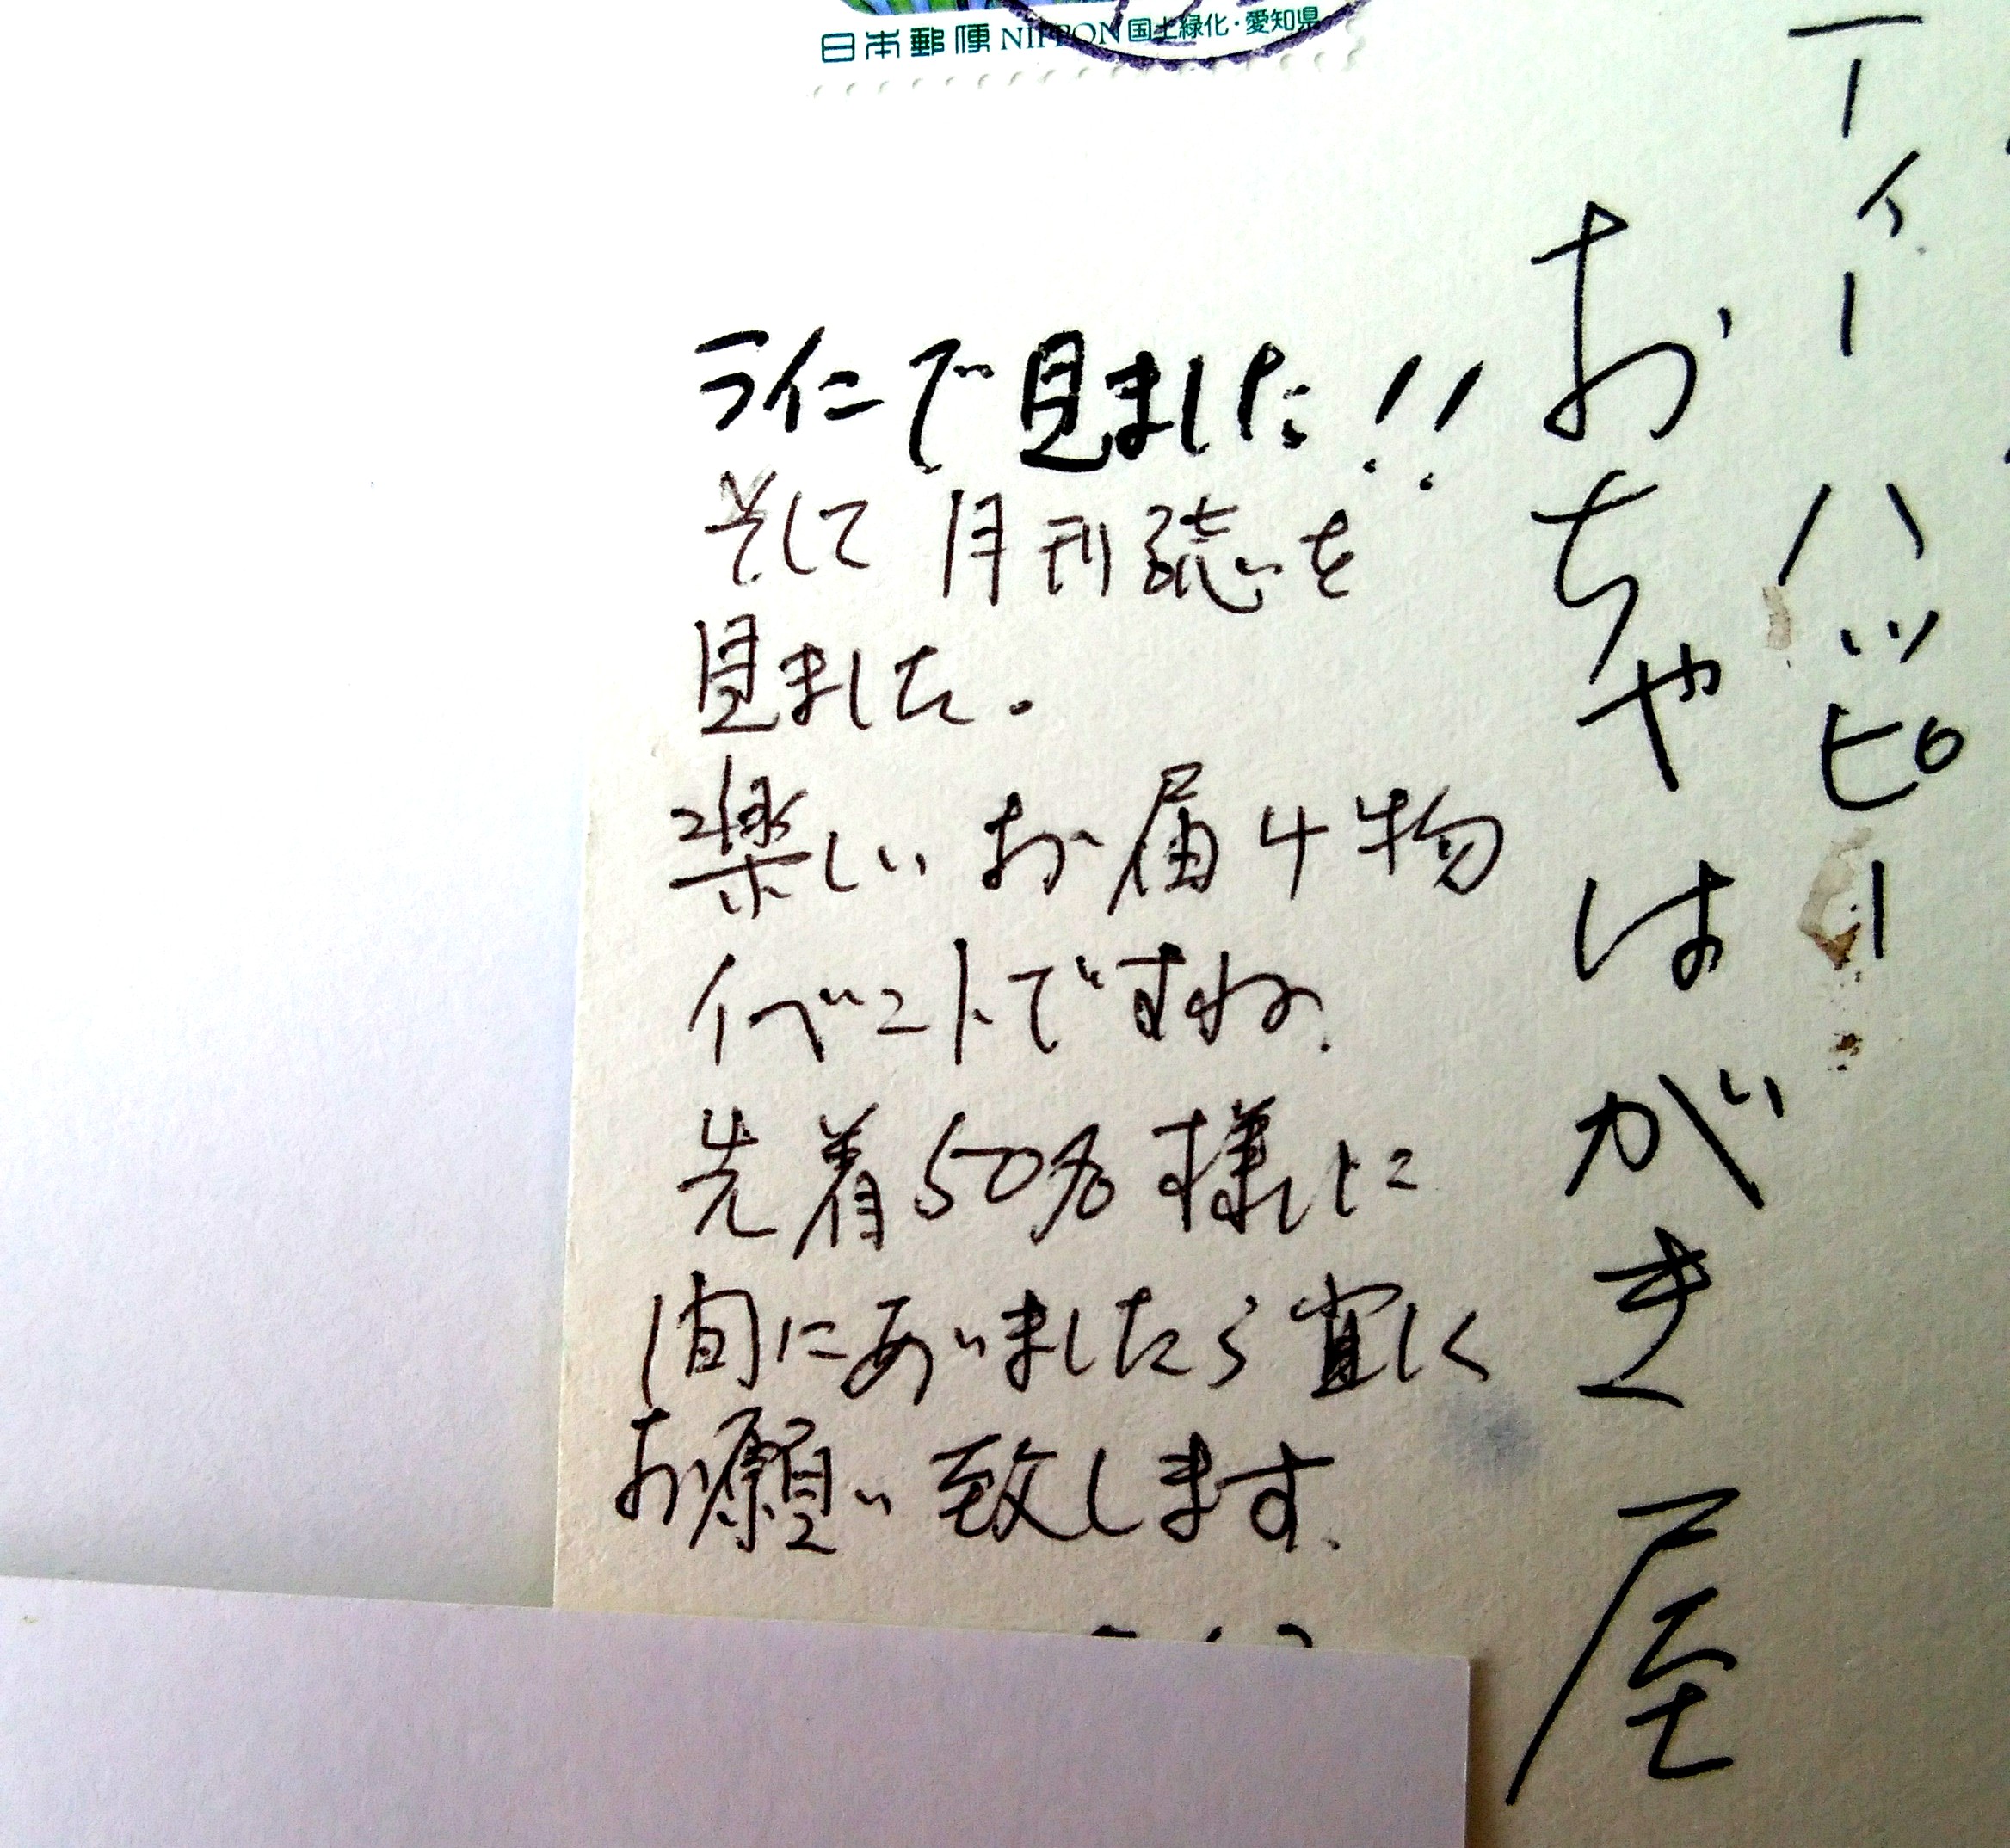 日本郵便 NIPPON 国土緑化・愛知県
ティーハッピー
おちゃはがき屋
ラインで見ました!!
そして 月刊誌を
見ました.
楽しい お届け物
イベントですね.
先着50名様に
間にあいましたら宜しく
お願い致します.